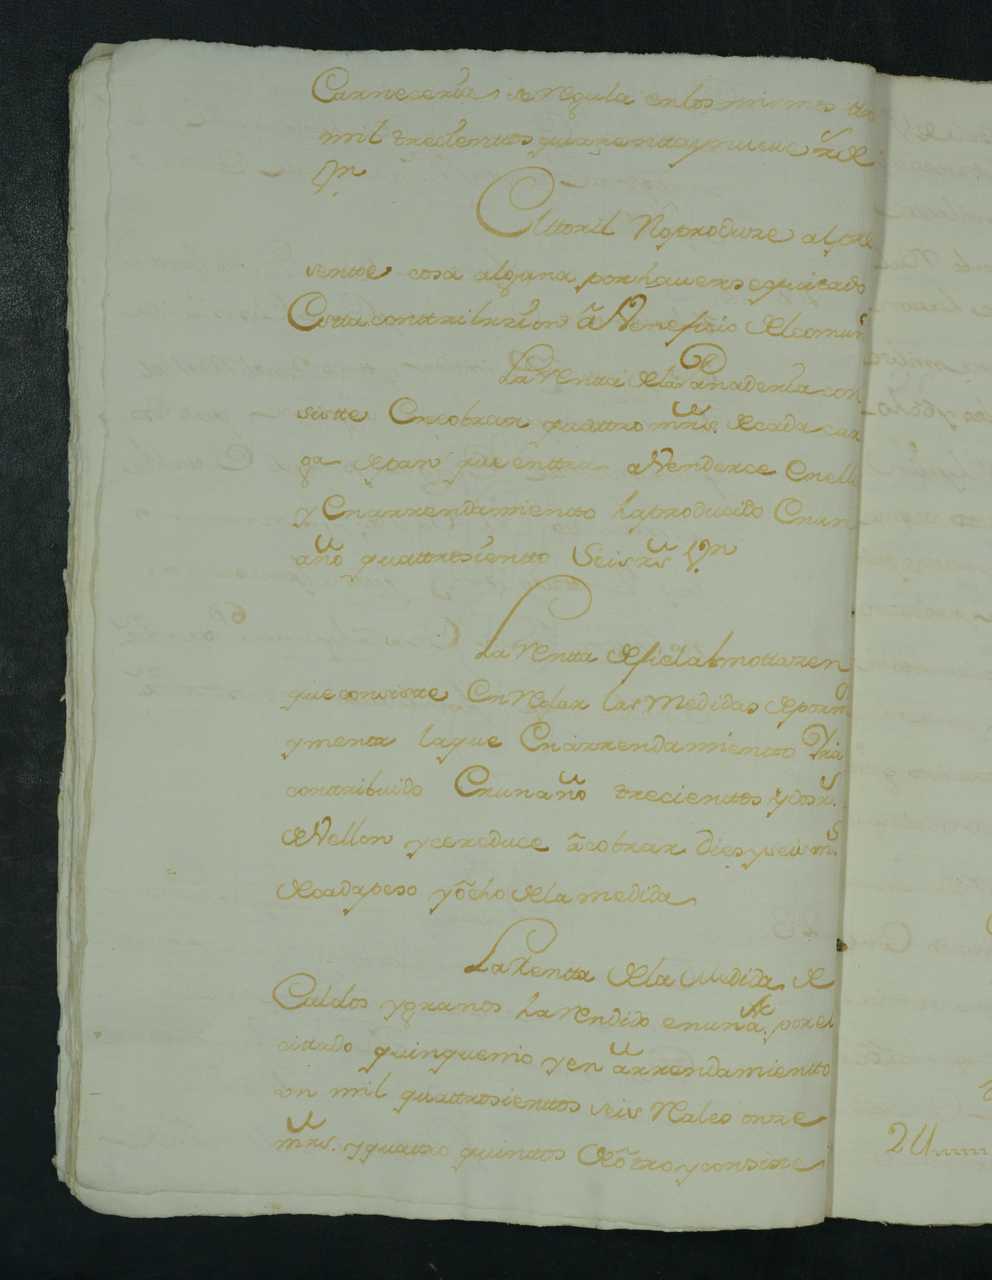 Carneceria, se regula en los mismos dos
mil trecientos quarrenta y nueve rs de
Vn
El ttoril No produze al pre
sente cosa alguna por haverse quitado
Cotta contribuzion â Veneficio de el comun
La Rentta de la Panaderia con
siste En cobrar quattro mrs. de cada car
ga de pan que enttra a Venderce En ella
y En arrendamientto ha producido En un
año quattrosientto Seis rs Vn
La Rentta de fiel almottazen
que consiste En Velar las Medidas de pan
y mentta la que En arrendamientto Ha
contribuido En un año trecienttos y dos rs.
de Vellon y ce reduce â cobrar Dies y seis ms.
de cada peso y ôcho de la medida
La Rentta de la Medida de
Caldos y granos ha rendido en un año. por el
cittado quinquenio y en ârrendamientto
un mil quattrosienttos seis Reales onze
mrs. y quatro quinttos de ôtro y consiste
24